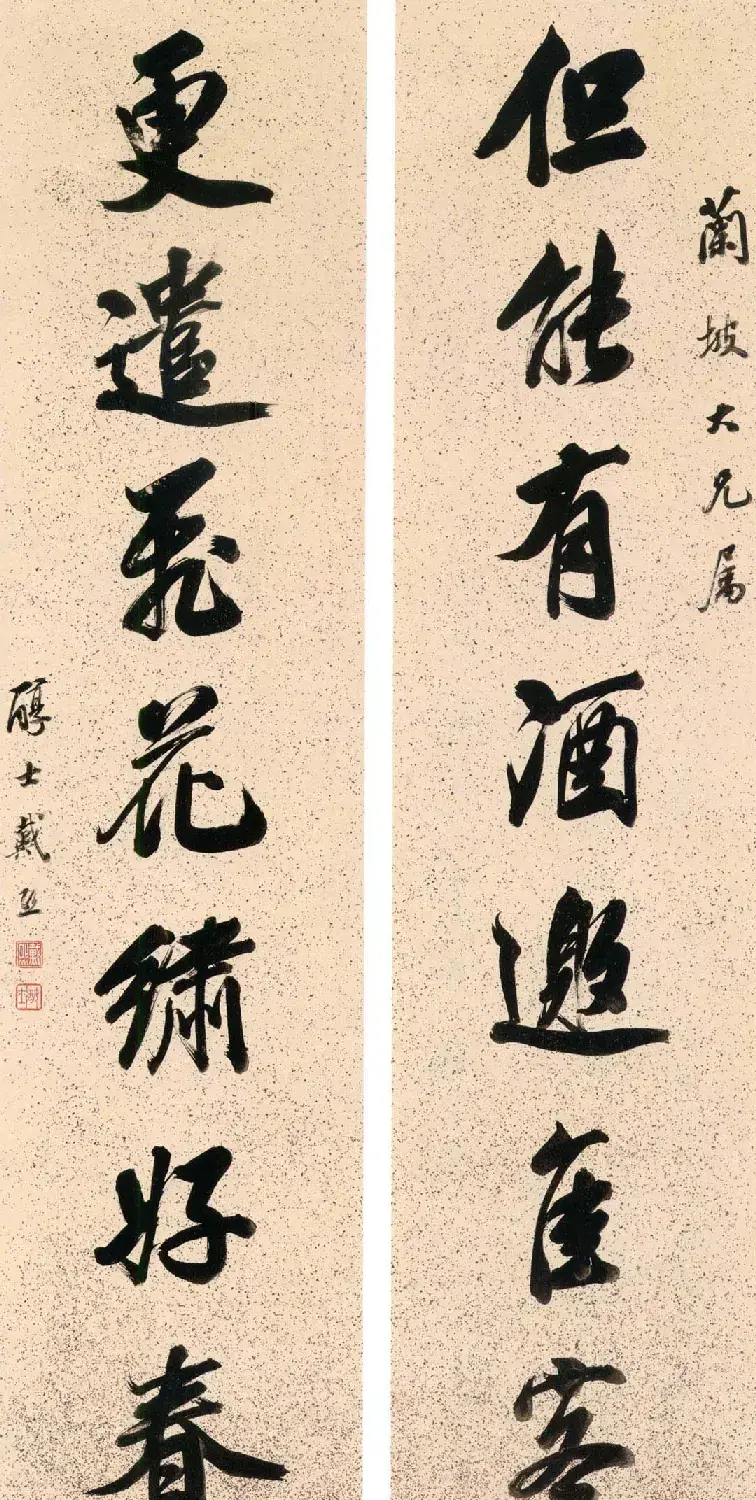 蘭坡大兄属
但能有酒邀佳客
更遣飛花繡好春
醇士戴熙